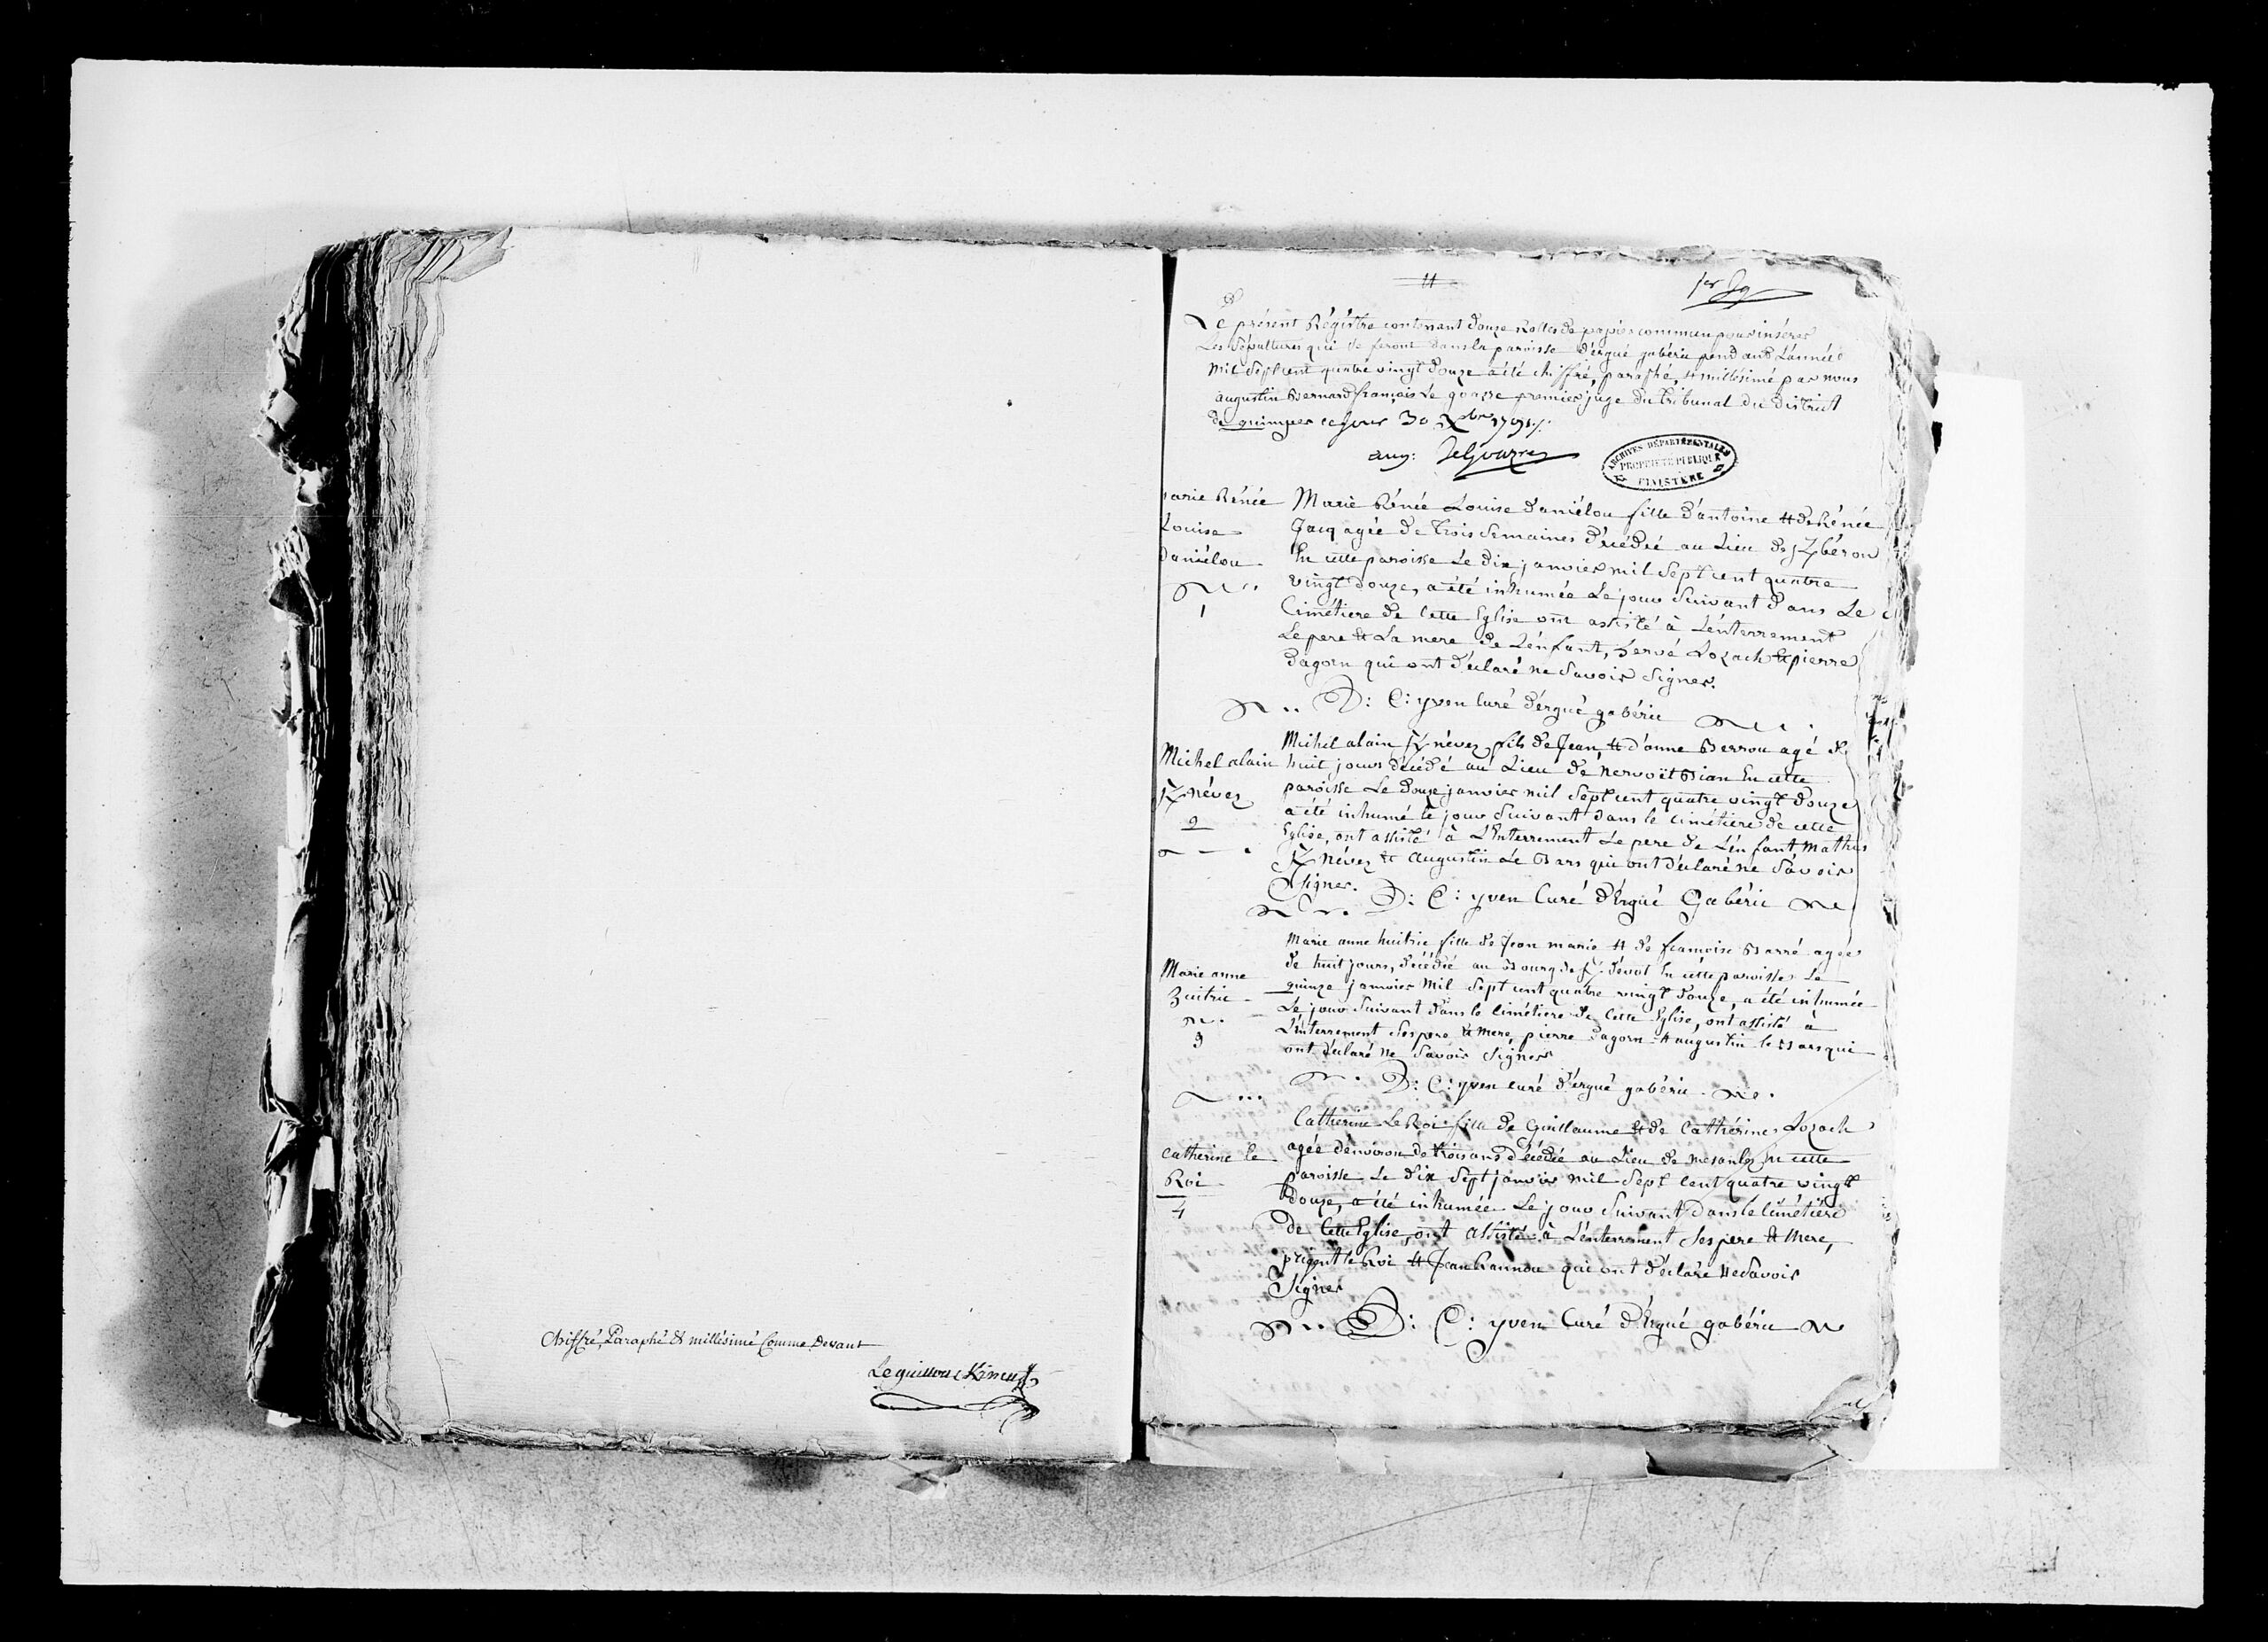 Chiffré, Paraphé & millésimé Comme Devant
Le guillou
1er
Le présent Régistre contenant douze Rolles de papier commun pour insérer
Les sépultures qui se feront dans la paroisse d'ergué gabéric pendant L'année
mil sept cent quatre vingt douze a été chiffré, paraphé, & millésimé par nous
augustin Bernard françois Le goazre premier juge du Tribunal du District
de quimper ce jour 30 Xbre 1791
aug: Le Goazre
ARCHIVES DÉPARTEMENTALES
PROPRIÉTÉ PUBLIQUE
FINISTÈRE
Marie Rénée
Louise
Daniélou
1
Marie Rénée Louise daniélou fille d'antoine & de Rénée
Jacq agée de trois semaines décédée au Lieu de Kbéron
En cette paroisse Le dix janvier mil sept cent quatre
vingt douze, a été inhumée Le jour suivant dans Le
Cimétiere de Cette Eglise ont assisté à L'énterrement
Le pere & La mere de L'énfant, hervé Lozach & pierre
dagorn qui ont déclaré ne savoir signer.
D: C: yven Curé d'ergué gabéric
Michel alain
Knévez
2
Michel alain Knévez fils de Jean & d'anne Berrou agé de
huit jours décédé au Lieu de Kervoët Bian En cette
paroisse Le douze janvier mil sept cent quatre vingt douze
a été inhumé le jour suivant dans le cimétiere de cette
Eglise, ont assisté à L'Enterrement Le pere de L'enfant Mathias
Knévez & augustin Le Bars qui ont déclaré ne savoir
signer. D: C: yven Curé d'Ergué Gabéric
Marie anne
huitric
3
Marie anne huitric fille de Jean marie & de francoise Barré agée
de huit jours, décédée au Bourg de K-dévot En cette paroisse Le
quinze janvier mil sept cent quatre vingt douze, a été inhumée
Le jour suivant dans le Cimétiere de Cette Eglise, ont assisté à
L'énterrement ses pere & mere, pierre dagorn & augustin le Bars qui
ont déclaré ne savoir signer
D: C: yven curé d'ergué gabéric
Catherine le
Roi
4
Catherine Le Roi fille de Guillaume & de Cathérine Lozach
agée d'environ de trois ans décédée au Lieu de Mesanlez En cette
paroisse Le dix sept janvier mil sept cent quatre vingt
douze, a été inhumée Le jour suivant dans le Cimétiere
de Cette Eglise, ont assisté à L'énterrement ses pere & mere,
prigent le Roi & Jean Rannou qui ont déclaré ne savoir
Signer
D: C: yven Curé d'Ergué gabéric